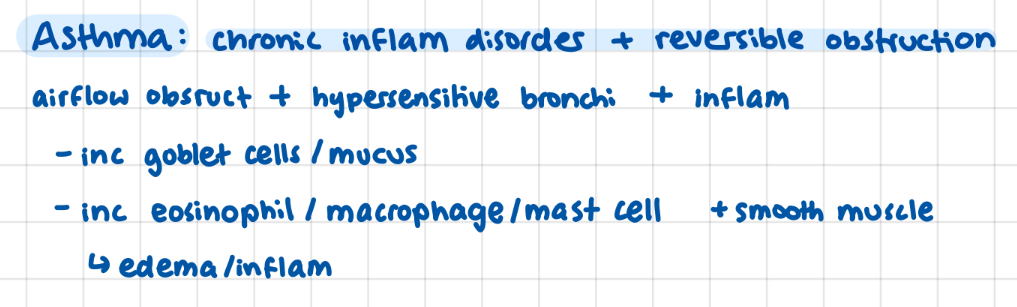 Asthma: chronic inflam disorder + reversible obstruction
airflow obsruct + hypersensitive bronchi + inflam
- inc goblet cells / mucus
- inc eosinophil / macrophage / mast cell + smooth muscle
↳ edema / inflam